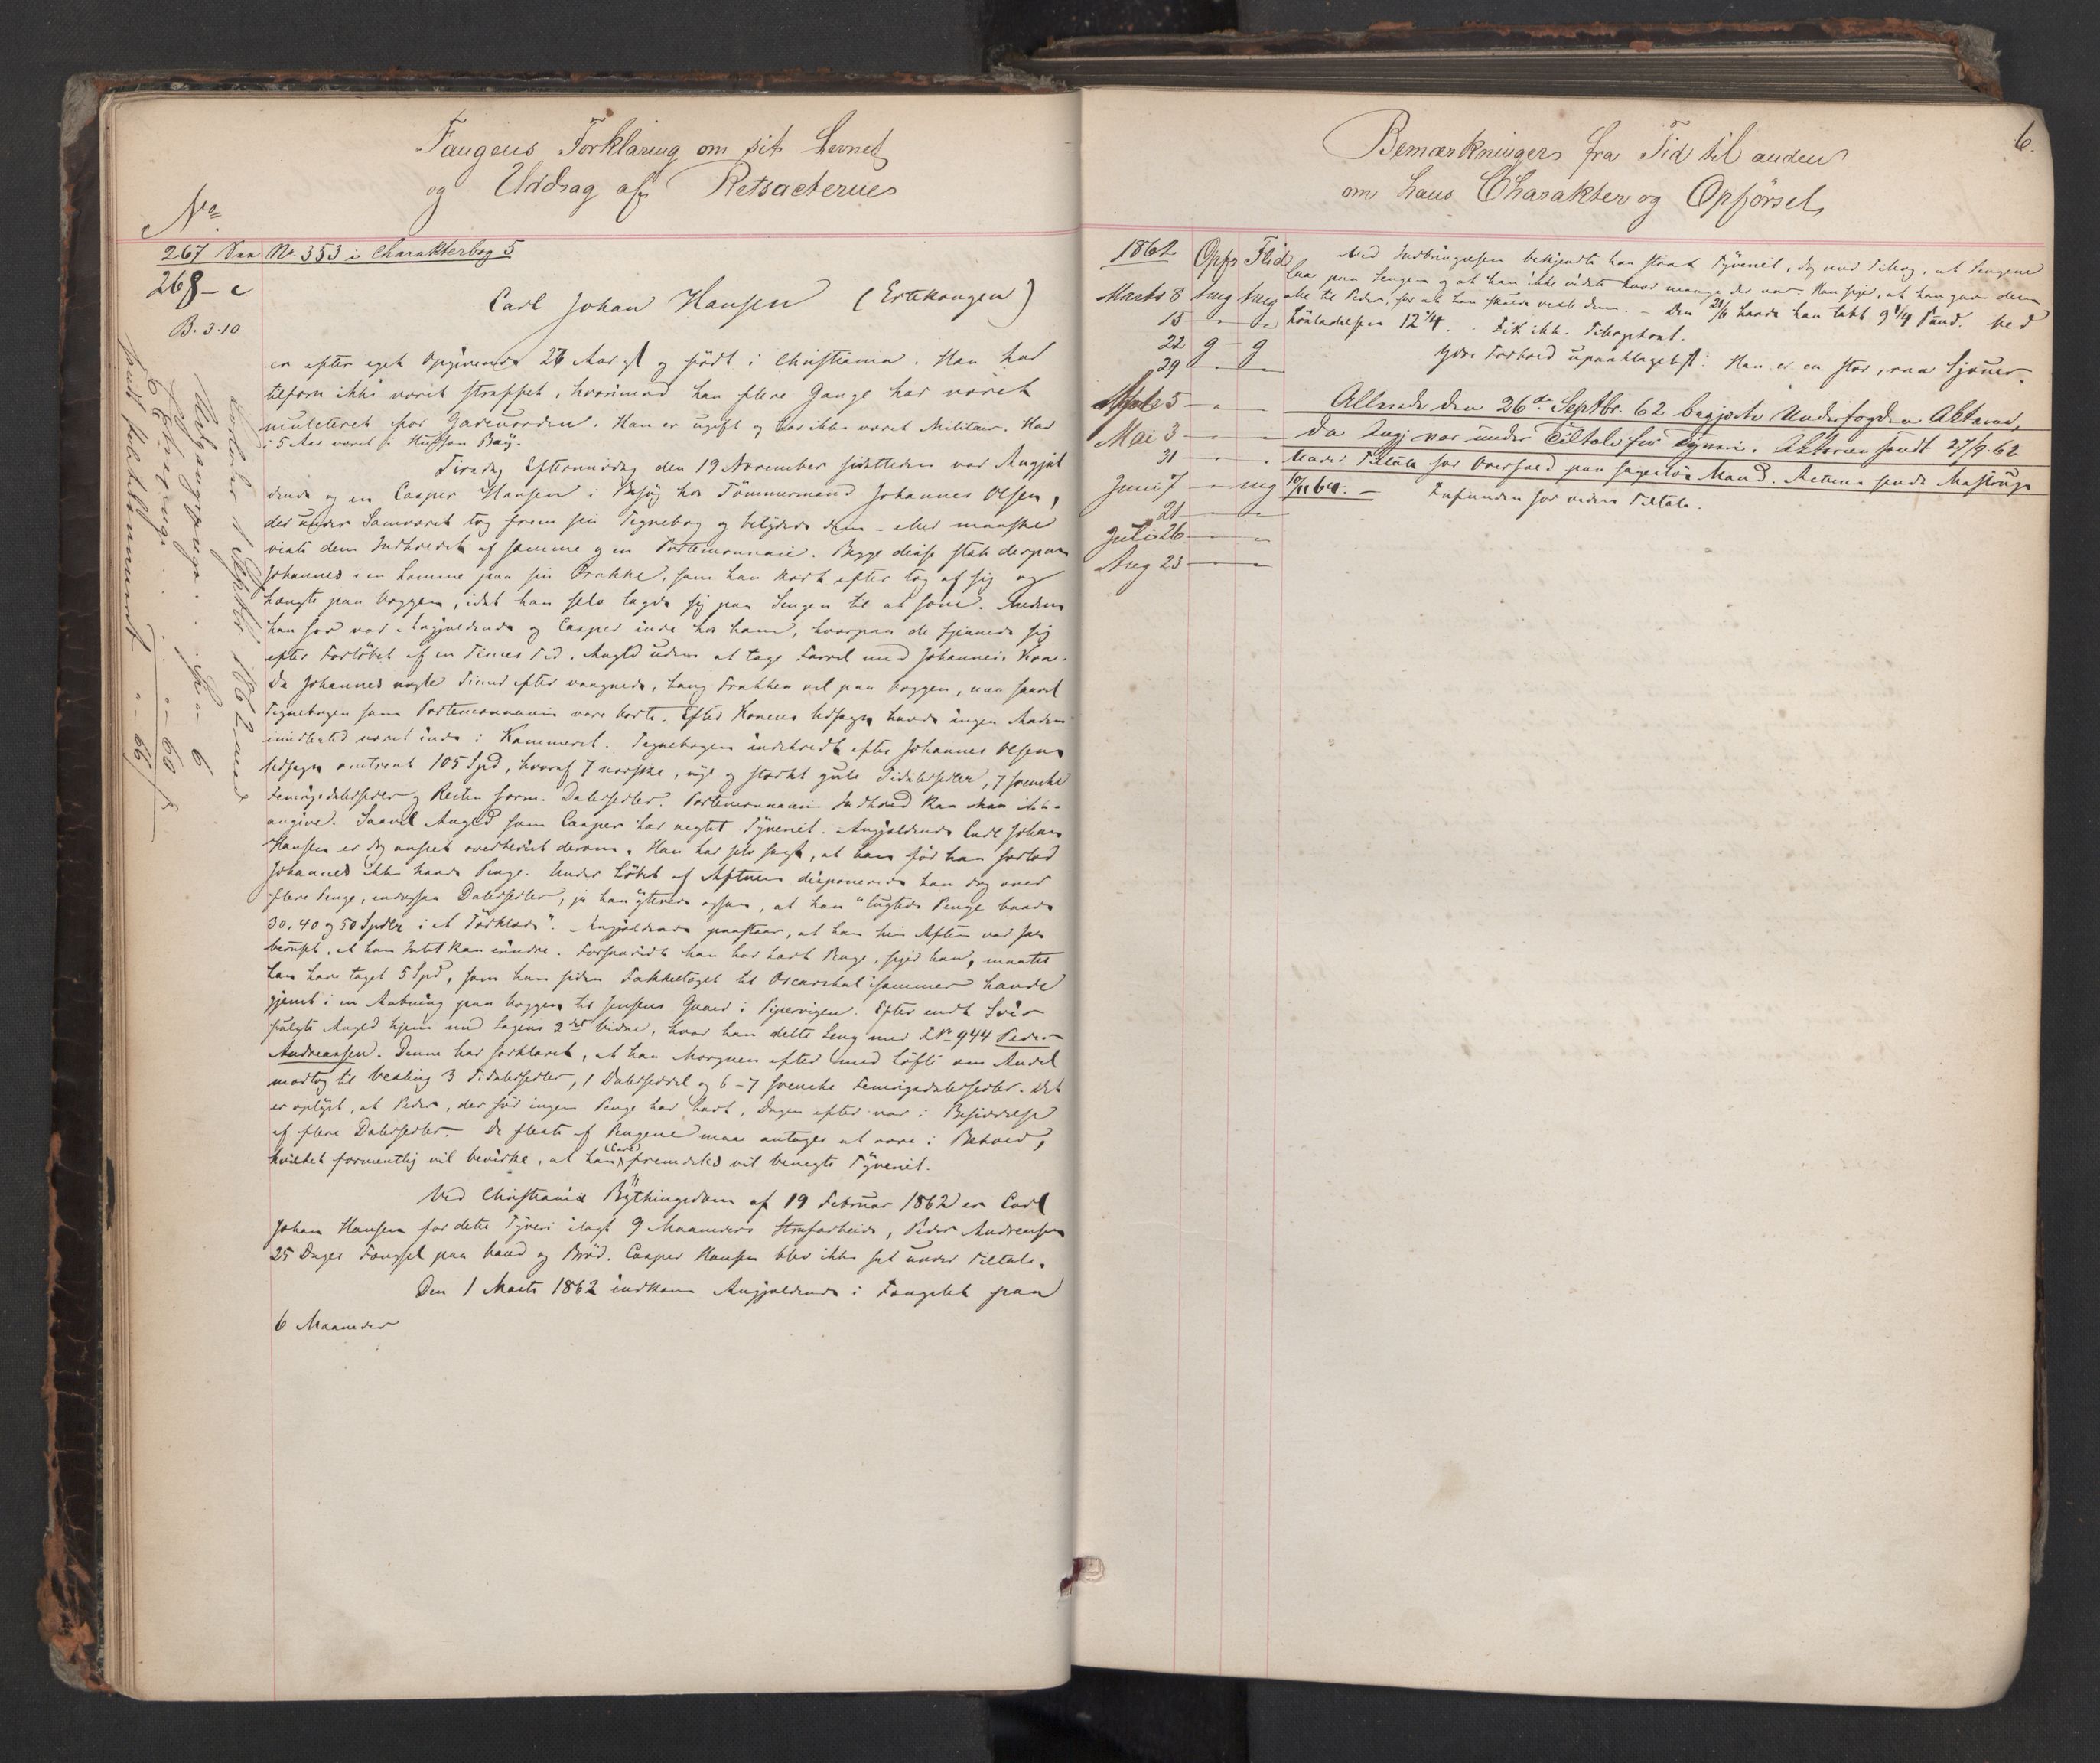 Fangens Forklaring om sit Levnet
og Uddrag af Retsacterne
No
267 See No 353 i Charakterbog 5
268 - c
B. 3.10
Carl Johan Hansen (Ertekongen)
er efter eget Opgivende 26 Aar gl og født i Christiania. Han har
tilforn ikke været straffet, hvorimod han flere Gange har været
mulcteret for Gadeuorden. Han er ugift og har ikke været Militair. Har
i 5 Aar været i Hudson Bay.
Tirsdag Eftermiddag den 19 November sidstleden var Angjæl
dende og en Casper Hansen i Besøg hos Tømmermand Johannes Olsen,
der under Samværet tog frem sin Tegnebog og betydede dem - eller maaske
viste dem Indholdet af samme og en Portemonnaie. Begge disse stak derpaa
Johannes i en Lomme paa sin Frakke, som han kort efter tog af sig og
hængte paa Væggen, idet han selv lagde sig paa Sengen til at sove. Medens
han sov var Angjældende og Casper inde hos ham, hvorpaa de fjernede sig
efter Forløbet af en Times Tid, Angld uden at tage Farvel med Johannes's Kone.
Da Johannes nogle Timer efter vaagnede, hang Frakken vel paa Væggen, men saavel
Tegnebogen som Portemonnaien vare borte. Efter Konens Udsagn havde ingen Anden
imidlertid været inde i Kammeret. Tegnebogen indeholdt efter Johannes Olsens
Udsagn omtrent 105 Spd, hvoraf 7 norske, nye og stærkt gule Tidalersedler, 7 svenske
Femrigsdalersedler og Resten norm. Dalersedler. Portemonnaiens Indhold kan han ikke
angive. Saavel Angld som Casper har negtet Tyveriet. Angjældende Carl Johan
Hansen er dog anseet overbevist derom. Han har selv sagt, at han før han forlod
Johannes ikke havde Penge. Under Løbet af Aftenen disponerede han dog over
flere Penge, endogsaa Dalersedler, ja han yttrede ogsaa, at han "lugtede Penge baade
30, 40 og 50 Spdlr i et Tørklæde". Angjældende paastaar, at han hin Aften var saa
beruset, at han Intet kan erindre. Forsaavidt han har havt Penge, siger han, maatte
han have taget 5 Spd, som han siden Fakkeltoget til Oscarshal isommer havde
gjemt i en Aabning paa Væggen til Jensens Gaard i Pipervigen. Efter endt Sviir
fulgte Angld hjem med Sagens 2det Vidne, hvor han delte Seng med F No 944 Peder
Andreassen. Denne har forklaret, at han Morgenen efter med Løfte om Andel
modtog til Vexling 3 Tidalersedler, 1 Dalerseddel og 6-7 svenske Femrigsdalersedler. Det
er oplyst, at Peder, der før ingen Penge har havt, Dagen efter var i Besiddelse
af flere Dalersedler. De fleste af Pengene maa antages at være i Behold,
hvilket formentlig vil bevirke, at han (Carl) fremdeles vil benegte Tyveriet.
Ved Christiania Bythingsdom af 19 Februar 1862 er Carl
Johan Hansen for dette Tyveri ilagt 9 Maaneders Strafarbeide, Peder Andreassen
25 Dages Fængsel paa Vand og Brød. Casper Hansen blev ikke sat under Tiltale.
Den 1 Marts 1862 indkom Angjældende i Fængslet paa
6 Maaneder
1 Septbr. 1862 med
Udgangspenge . . 6
. . 60
" - 66
Bemærkninger fra Tid til anden
om hans Charakter og Opførsel
6.
1862 Opfr Flid
Marts 8 tmg tmg
15 - -
22 g - g
29 - -
April 5 - -
Mai 3 - -
31 - -
Juni 7 - mg
21 - -
Juli 26 - -
Aug 23 - -
Ved Indbringelsen bekjendte han strax Tyveriet, dog med Tillæg, at Pengene
laae paa Sengen og at han ikke vidste hvor mange der var. Han siger, at han gav dem
alle til Peder, for at han skulde vexle dem. - Den 21/6 havde han tabt 9 1/4 Pund. Ved
Løsladelsen 12 1/4. - Fik ikke Tillægskost.
Hans Forhold upaaklageligt. Han er en stor, raa Sjouer.
Allerede den 26de Septbr. 62 begjærte Underfogden Akterne,
da Angj var under Tiltale for Tyveri. Akterne sendt 27/9-62
10/11 64. - Under Tiltale for Overfald paa sagesløs Mand. Acterne sendt
Infunden for videre Tiltale.